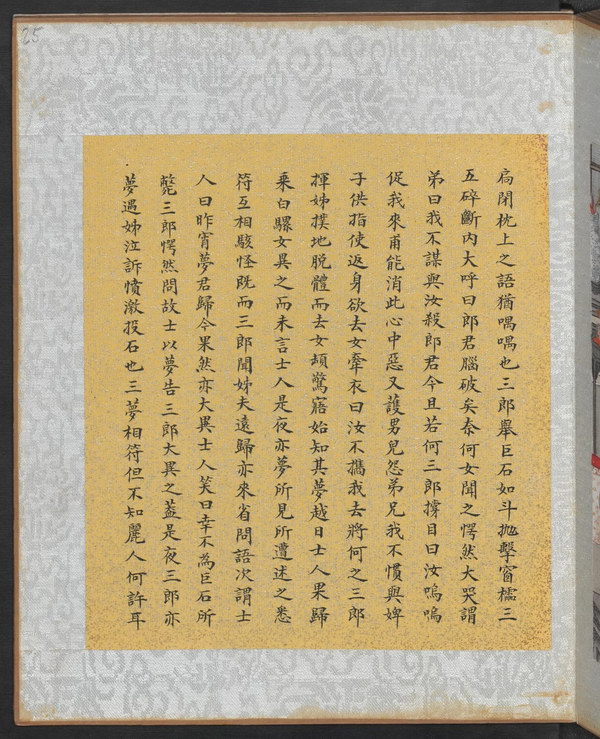 25
扃閉枕上之語猶喁喁也三郎舉巨石如斗拋擊窗櫺三
五碎斷內大呼曰郎君腦破矣奈何女聞之愕然大哭謂
弟曰我不謀與汝殺郎君今且若何三郎撐目曰汝嗚嗚
促我來甫能消此心中惡又護男兒怨弟兄我不慣與婢
子供指使返身欲去女牽衣曰汝不攜我去將何之三郎
揮姊撲地脫體而去女頓驚寤始知其夢越日士人果歸
乘白騾女異之而未言士人是夜亦夢所見所遭述之悉
符互相駭怪既而三郎聞姊夫遠歸亦來省問語次謂士
人曰昨宵夢君歸今果然亦大異士人笑曰幸不為巨石所
斃三郎愕然問故士以夢告三郎大異之蓋是夜三郎亦
夢遇姊泣訴憤激投石也三夢相符但不知麗人何許耳